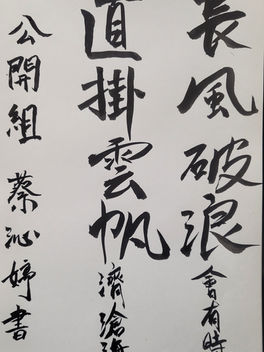 長風破浪會有時
直掛雲帆濟滄海
公開組 蔡沁婷書